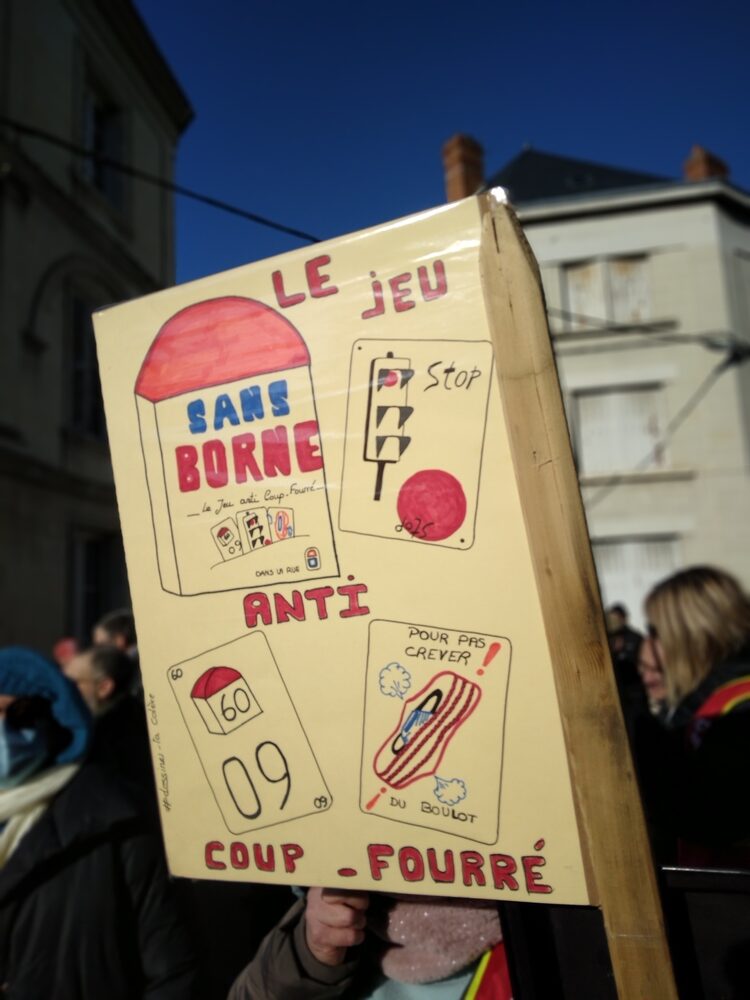 LE JEU
SANS
BORNE
Le Jeu anti Coup-Fourré
09
DANS LA RUE
Stop
ANTI
60
60
09
09
POUR PAS
CREVER !
! DU BOULOT
#dessines-ta colère
COUP - FOURRÉ